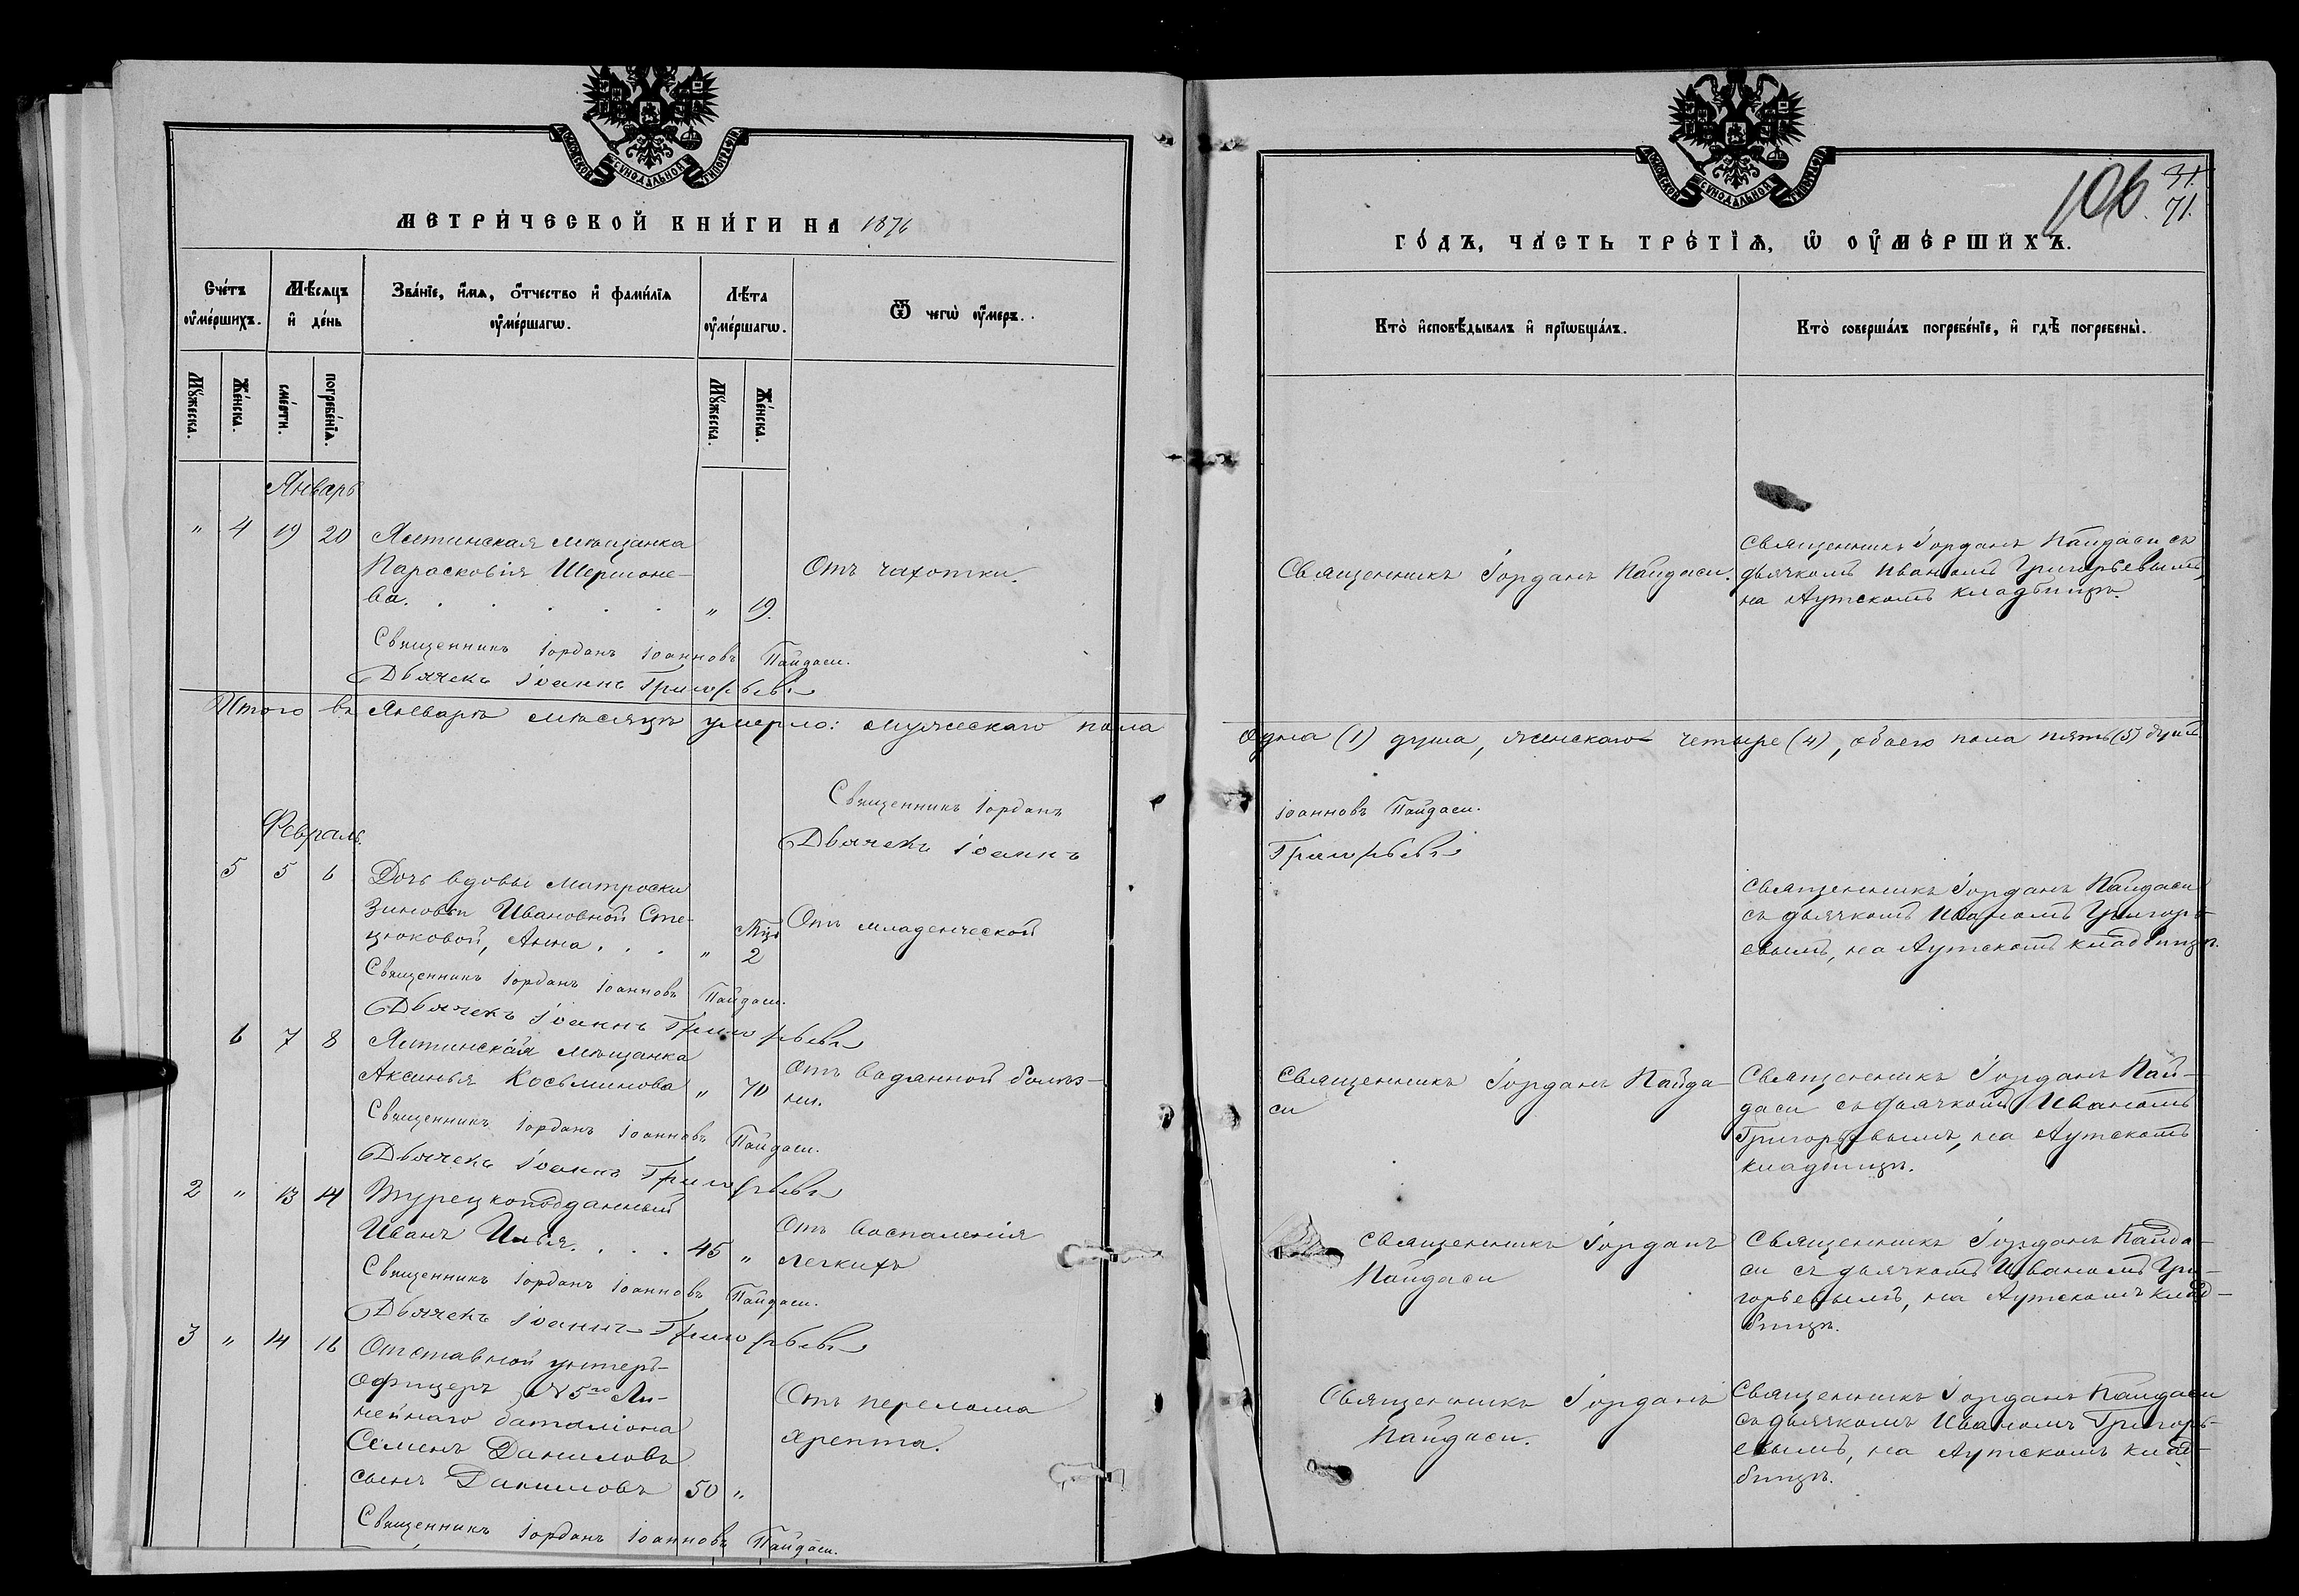 МОСКОВСКОЙ СѴНОДАЛЬНОЙ ТИПОГРАФІИ
МЕТРИ́ЧЕСКОЙ КНИ́ГИ НА 1876
Счетъ оумершихъ.
Мѣсяцъ и день
Званіе, имя, отчество и фамилія оумершагѡ.
Лѣта оумершагѡ.
Ѿ чегѡ оумеръ.
Мужеска.
Женска.
смерти.
погребенія.
Мужеска.
Женска.
Январь
" 4 19 20 Ялтинская мѣщанка
Парасковія Шершоне-
ва. . . . . . " 19.
Отъ чахотки.
Священникъ Іорданъ Іоанновъ Пайдаси.
Дьячекъ Іоаннъ Григорьевъ
Итого въ Январѣ мѣсяцѣ умерло: мужескаго пола
Священникъ Іорданъ
Дьячекъ Іоаннъ
Февраль.
5 5 6 Дочь вдовы матроски
Зиновьи Ивановной Сте-
цюковой, Анна . . . " Мцъ 2
Отъ младенческой
Священникъ Іорданъ Іоанновъ Пайдаси.
Дьячекъ Іоаннъ Григорьевъ
6 7 8 Ялтинская мѣщанка
Аксинья Косьминова " 70
Отъ водянной болѣз-
ни.
Священникъ Іорданъ Іоанновъ Пайдаси.
Дьячекъ Іоаннъ Григорьевъ
2 " 13 14 Турецкоподданный
Иванъ Илья. . . . 45 "
Отъ воспаленія
легкихъ
Священникъ Іорданъ Іоанновъ Пайдаси.
Дьячекъ Іоаннъ Григорьевъ
3 " 14 16 Отставной унтеръ-
офицеръ № 5го Ли-
нейнаго баталіона
Семенъ Даниловъ
сынъ Даниловъ 50 "
Отъ перелома
хрепта.
Священникъ Іорданъ Іоанновъ Пайдаси.
МОСКОВСКОЙ СѴНОДАЛЬНОЙ ТИПОГРАФІИ
106
31.
71.
ГОДЪ, ЧАСТЬ ТРЕТІЯ, Ѡ ОУМЕРШИХЪ.
Кто исповѣдывалъ и пріѡбщалъ.
Кто совершалъ погребеніе, и гдѣ погребены.
Священникъ Іорданъ Пайдаси.
Священникъ Іорданъ Пайдаси съ
дьячкомъ Иваномъ Григорьевымъ,
на Аутскомъ кладбищѣ.
одна (1) душа, женскаго четыре (4), обоего пола пять (5) душъ.
Іоанновъ Пайдаси.
Григорьевъ
Священникъ Іорданъ Пайдаси
съ дьячкомъ Иваномъ Григорь-
евымъ, на Аутскомъ кладбищѣ.
Священникъ Іорданъ Пайда-
си
Священникъ Іорданъ Пай-
даси съ дьячкомъ Иваномъ
Григорьевымъ, на Аутскомъ
кладбищѣ.
Священникъ Іорданъ
Пайдаси
Священникъ Іорданъ Пайда-
си съ дьячкомъ Иваномъ Гри-
горьевымъ, на Аутскомъ клад-
бищѣ.
Священникъ Іорданъ
Пайдаси.
Священникъ Іорданъ Пайдаси
съ дьячкомъ Иваномъ Григорь-
евымъ, на Аутскомъ клад-
бищѣ.